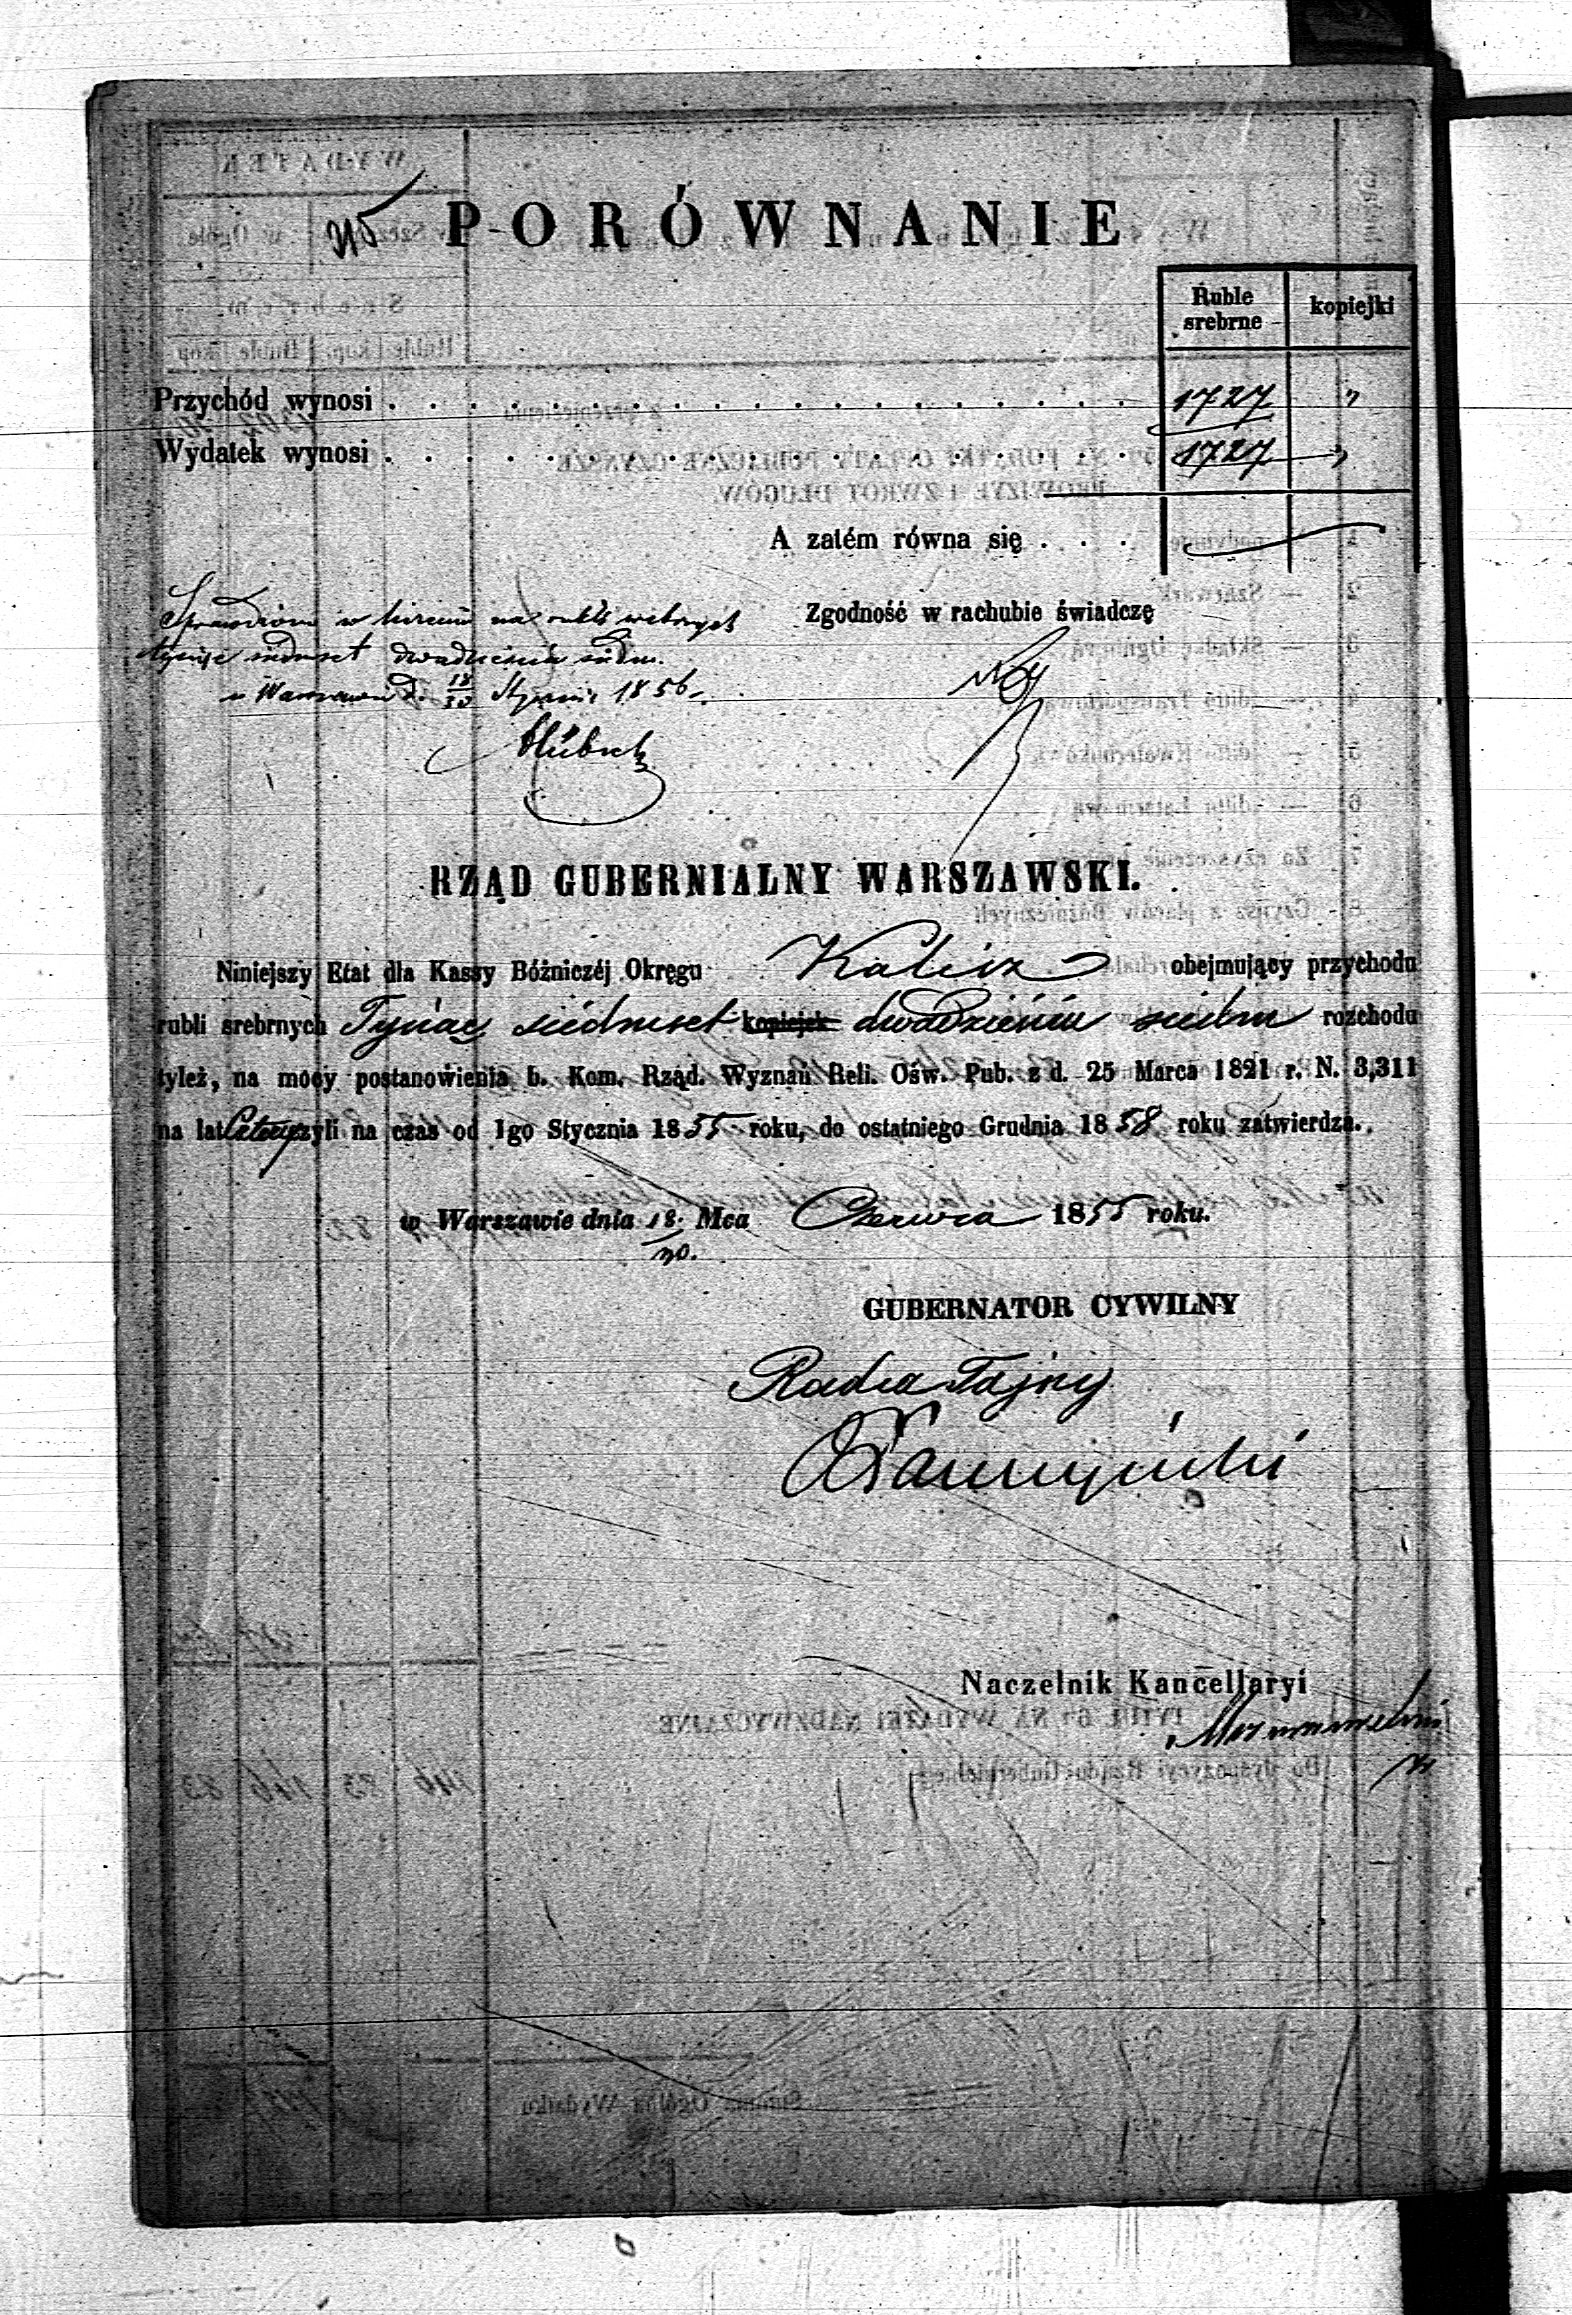 PORÓWNANIE
Ruble srebrne kopiejki
Przychód wynosi . . . 1727 "
Wydatek wynosi . . . 1727 "
A zatém równa się . . .
Zgodność w rachubie świadczę
Sprawdzono w na rubli srebrnych
tysiąc siedmset dwadzieścia siedm.
w Warszawie d. 18/30 Stycznia 1856.
RZĄD GUBERNIALNY WARSZAWSKI.
Niniejszy Etat dla Kassy Bóżniczéj Okręgu Kalisz obejmujący przychodu
rubli srebrnych Tysiąc siedmset kopiejek dwadzieścia siedm rozchodu
tyleż, na mocy postanowienia b. Kom. Rząd. Wyznań Reli. Ośw. Pub. z d. 25 Marca 1821 r. N. 3,311
na lat Cztery czyli na czas od 1go Stycznia 1855 roku, do ostatniego Grudnia 1858 roku zatwierdza.
w Warszawie dnia 18/30. Mca Czerwca 1855 roku.
GUBERNATOR CYWILNY
Radca Tajny
Naczelnik Kancellaryi